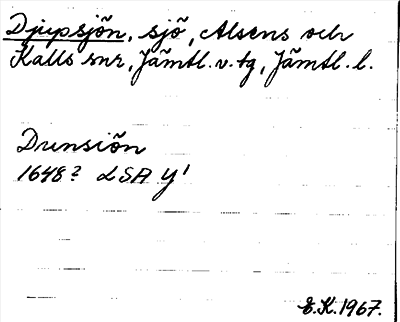 Djupsjön, sjö, Alsens och
Kalls snr, Jämtl. v. tg, Jämtl. l.
Drensiön
1648? LSA Y¹
E.K. 1967.